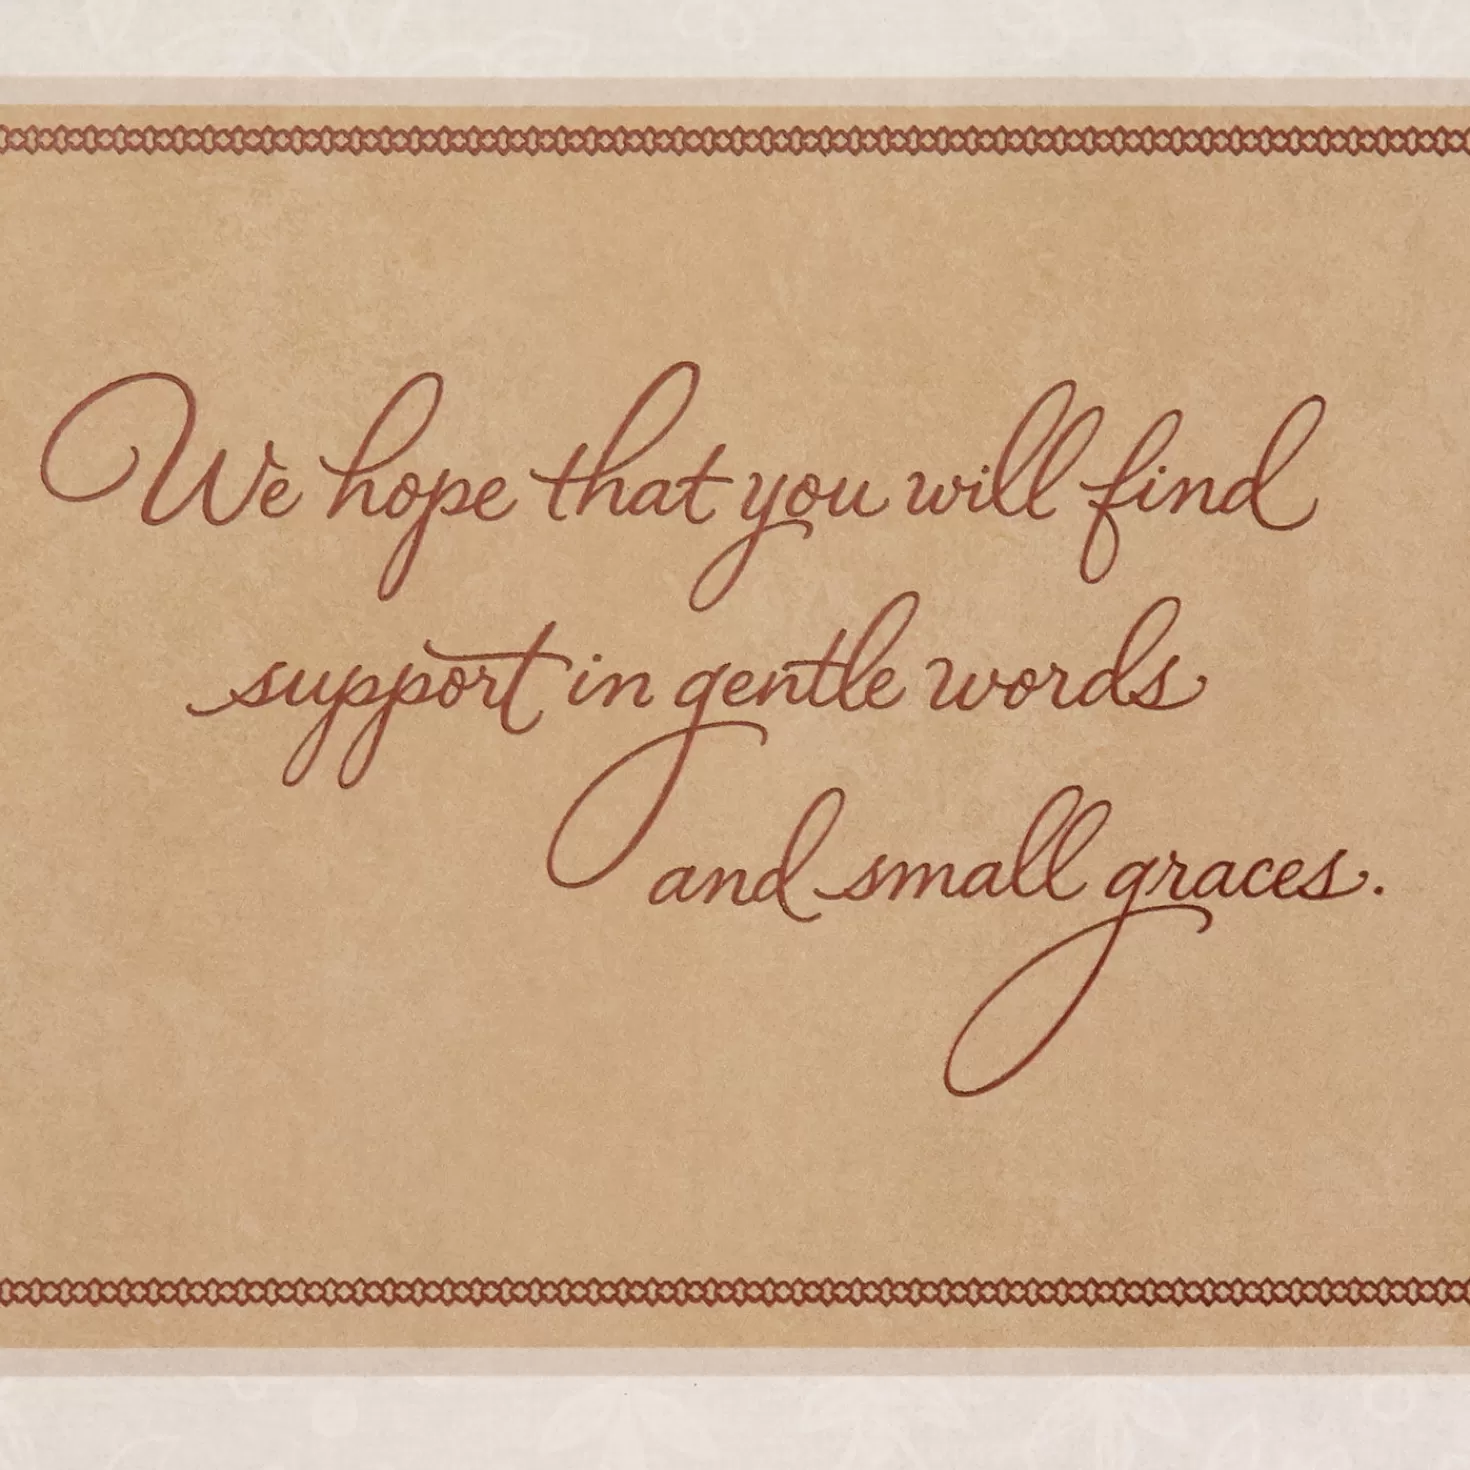 We hope that you will find
support in gentle words
and small graces.